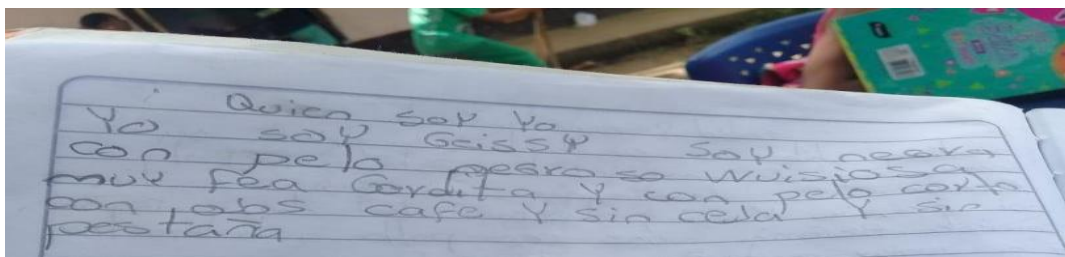 Quien soy Yo
Yo soy Geissy soy negra
con pelo negro so
muy fea Gordita y con pelo corto
con ojos cafe y sin ceja y sin
pestaña